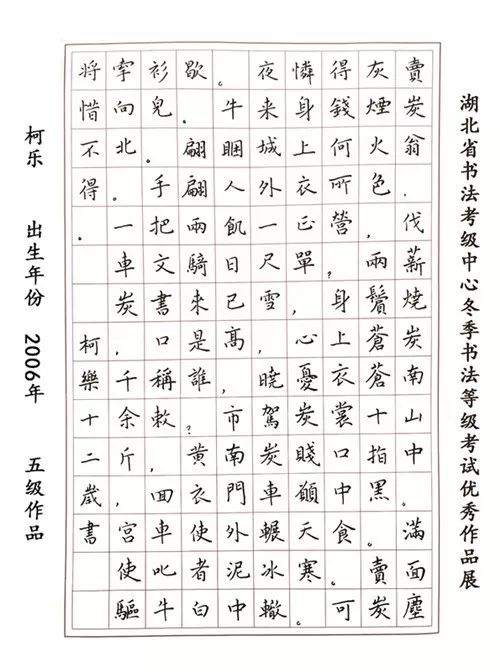 湖北省书法考级中心冬季书法等级考试优秀作品展
賣炭翁，伐薪燒炭南山中。滿面塵
灰煙火色，兩鬢蒼蒼十指黑。賣炭
得錢何所營？身上衣裳口中食。可
憐身上衣正單，心憂炭賤願天寒。
夜来城外一尺雪，曉駕炭車輾冰轍
。牛睏人飢日已高，市南門外泥中
歇。翩翩兩騎来是誰？黄衣使者白
衫兒。手把文書口稱敕，回車叱牛
牽向北。一車炭，千余斤，宮使驅
將惜不得。柯樂十二歲書
柯乐 出生年份 2006年 五级作品